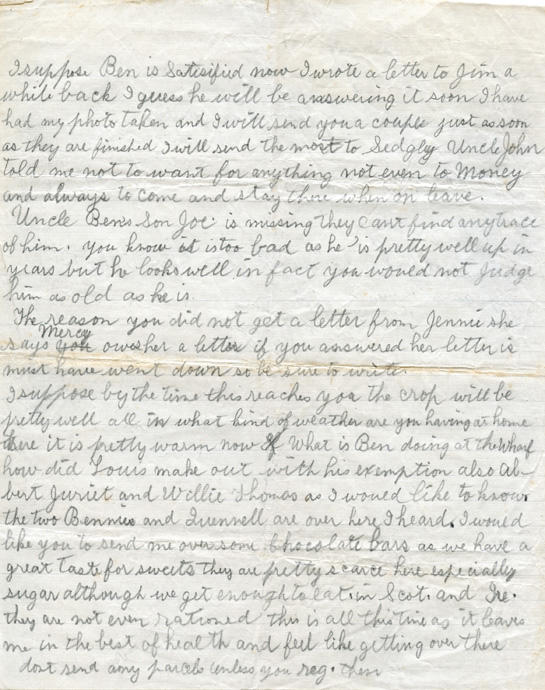 I suppose Ben is Satisified now I wrote a letter to Jim a
while back I guess he will be answering it soon I have
had my photo taken and I will send you a couple just as soon
as they are finished I will send the most to Sedgly Uncle John
told me not to want for anything not even to Money
and always to come and stay there when on leave.
Uncle Ben's Son Joe is missing they cant find any trace
of him. you know it is too bad as he is pretty well up in
years but he looks well in fact you would not Judge
him as old as he is
The reason you did not get a letter from Jennie she
Mercy
says you owes her a letter if you answered her letter is
must have went down so be sure to write
I suppose by the time this reaches you the crop will be
pretty well all in what kind of weather are you having at home
here it is pretty warm now What is Ben doing at the Wharf
how did Louis make out with his exemption also Al-
bert Juriet and Willie Thomas as I would like to know.
the two Bennies and Quennell are over here I heard. I would
like you to send me over some Chocolate bars as we have a
great taste for sweets they are pretty scarce here especially
sugar although we get enough to eat. in Scot. and Ire.
they are not even rationed this is all this time as it leaves
me in the best of health and feel like getting over there
dont send any parcels unless you reg. them